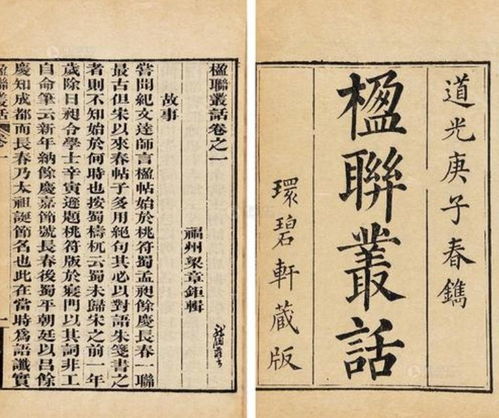 道光庚子春鐫
楹聯叢話
環碧軒藏版
楹聯叢話卷之一
福州梁章鉅輯
故事
嘗聞紀文達師言楹帖始於桃符蜀孟昶餘慶長春一聯
最古但宋以來春帖子多用絕句其必以對語朱箋書之
者則不知始於何時也按蜀檮杌云蜀未歸宋之前一年
歲除日昶令學士辛寅遜題桃符版於寢門以其詞非工
自命筆云新年納餘慶嘉節號長春後蜀平朝廷以呂餘
慶知成都而長春乃太祖誕節名也此在當時為語讖實
楹聯叢話
卷一
一